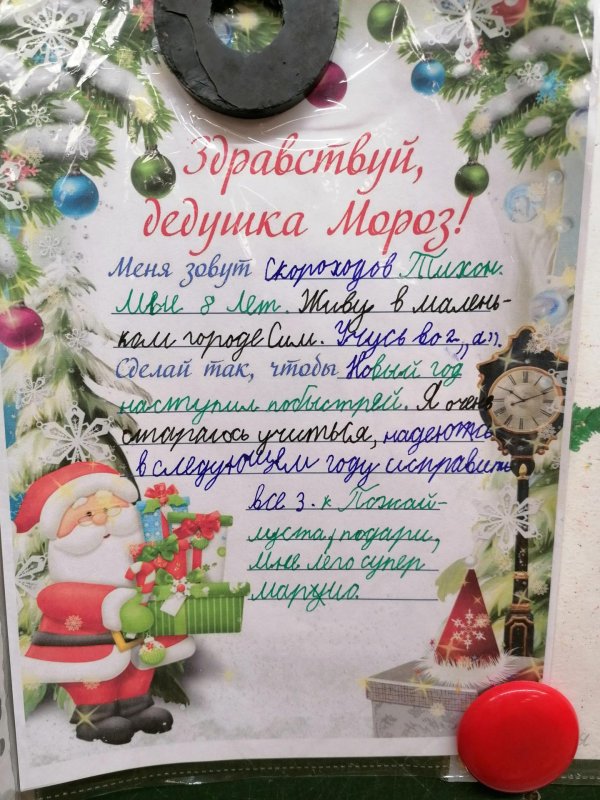 Здравствуй,
дедушка Мороз!
Меня зовут Скороходов Тихон.
Мне 8 лет. Живу в малень-
ком городе Сим. Учусь во 2 „а".
Сделай так, чтобы Новый год
наступил побыстрей. Я очень
стараюсь учиться, надеюсь
в следующем году исправить
все 3. к Пожай-
луста, подари,
мне лего супер
марио.